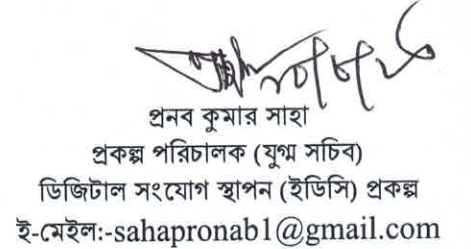 প্রনব কুমার সাহা
প্রকল্প পরিচালক (যুগ্ম সচিব)
ডিজিটাল সংযোগ স্থাপন (ইডিসি) প্রকল্প
ই-মেইল:-sahapronab1@gmail.com